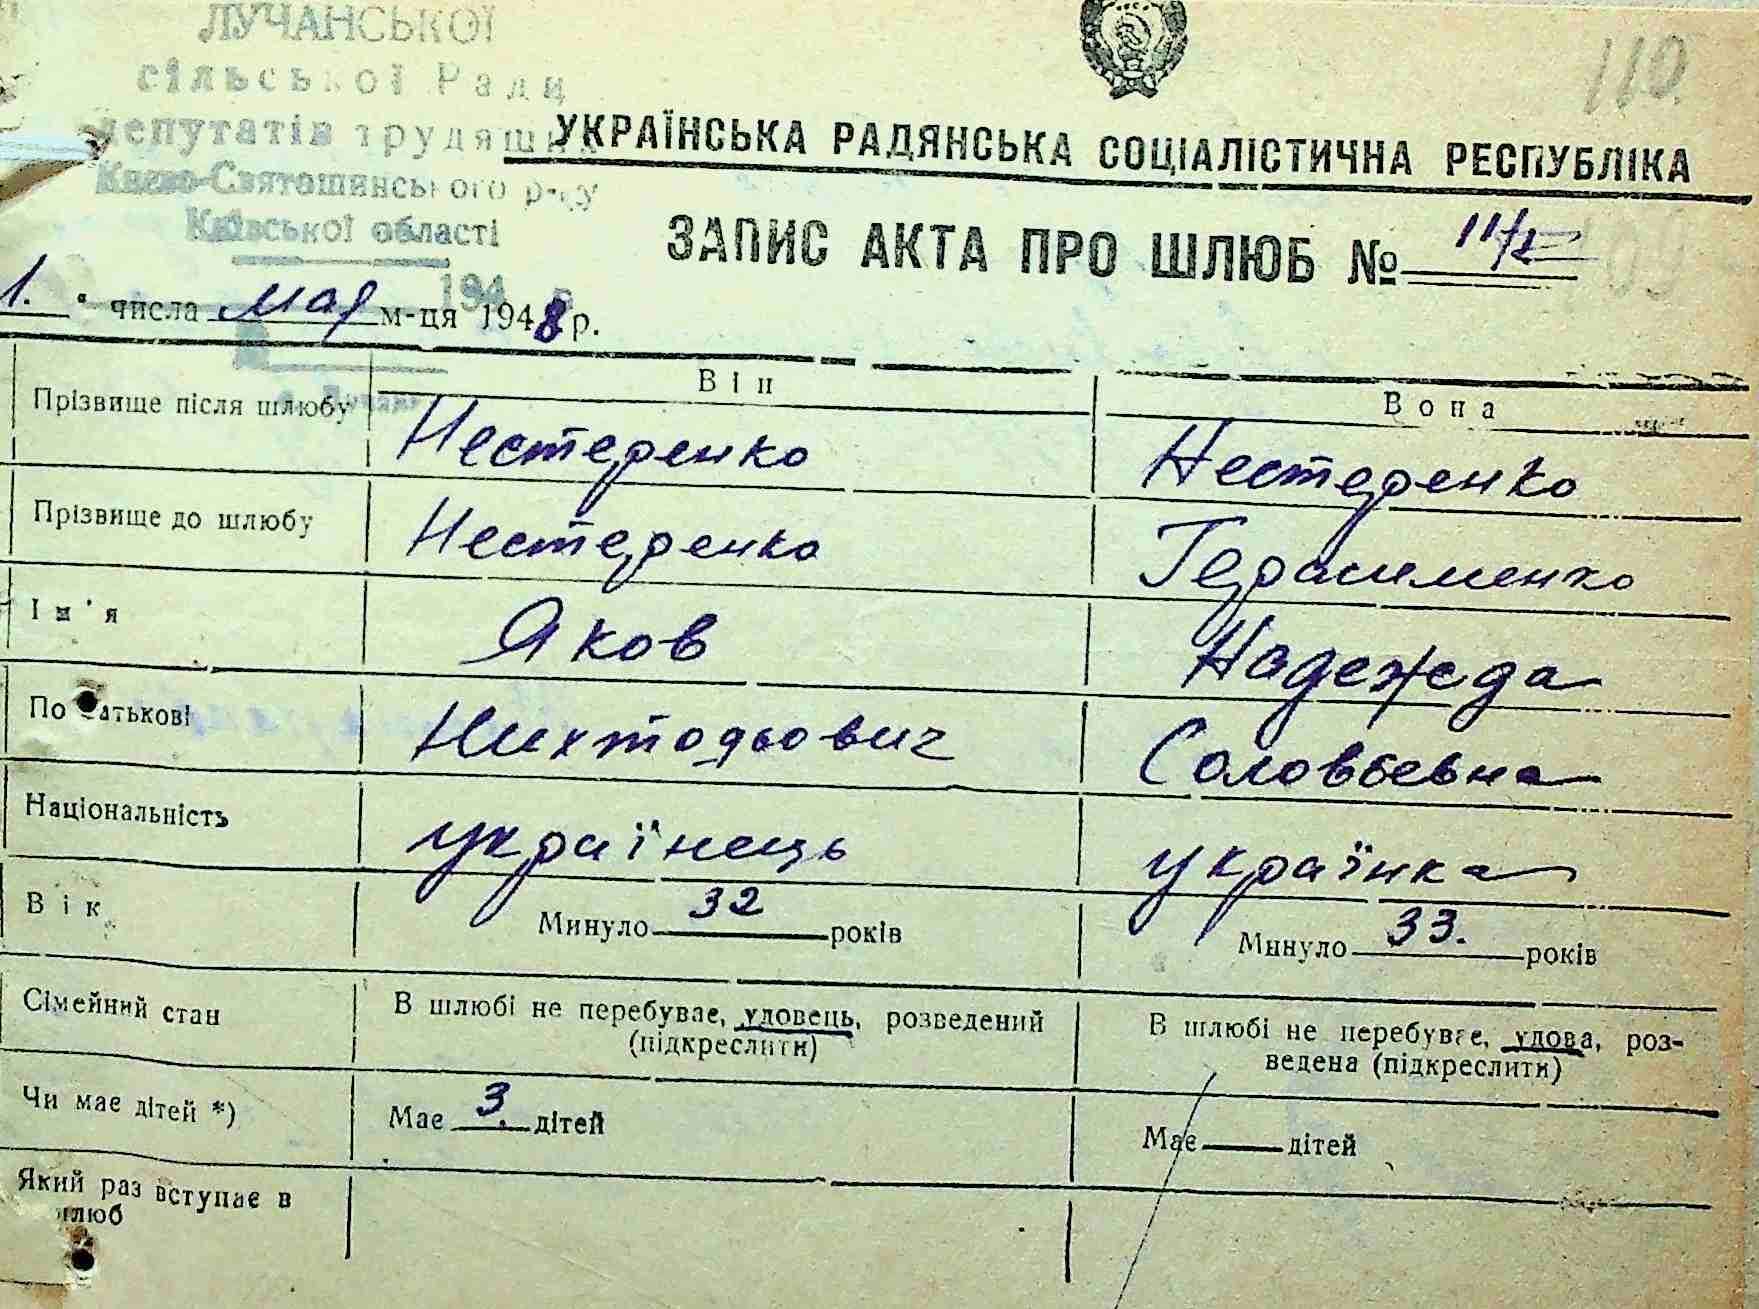 ЛУЧАНСЬКОЇ
сільської Ради
депутатів трудящих
Києво-Святошинського р-ну
Київської області
194 р.
110
УКРАЇНСЬКА РАДЯНСЬКА СОЦІАЛІСТИЧНА РЕСПУБЛІКА
ЗАПИС АКТА ПРО ШЛЮБ №
1. " числа мая м-ця 1948 р.
Він Вона
Прізвище після шлюбу Нестеренко Нестеренко
Прізвище до шлюбу Нестеренко Герасименко
Ім'я Яков Надежда
По батькові Соловьевна
Національність українець українка
Вік Минуло 32 років Минуло 33. років
Сімейний стан В шлюбі не перебуває, удовець, розведений
(підкреслити)
В шлюбі не перебуває, удова, роз-
ведена (підкреслити)
Чи має дітей *) Має 3. дітей Має дітей
Який раз вступає в
шлюб